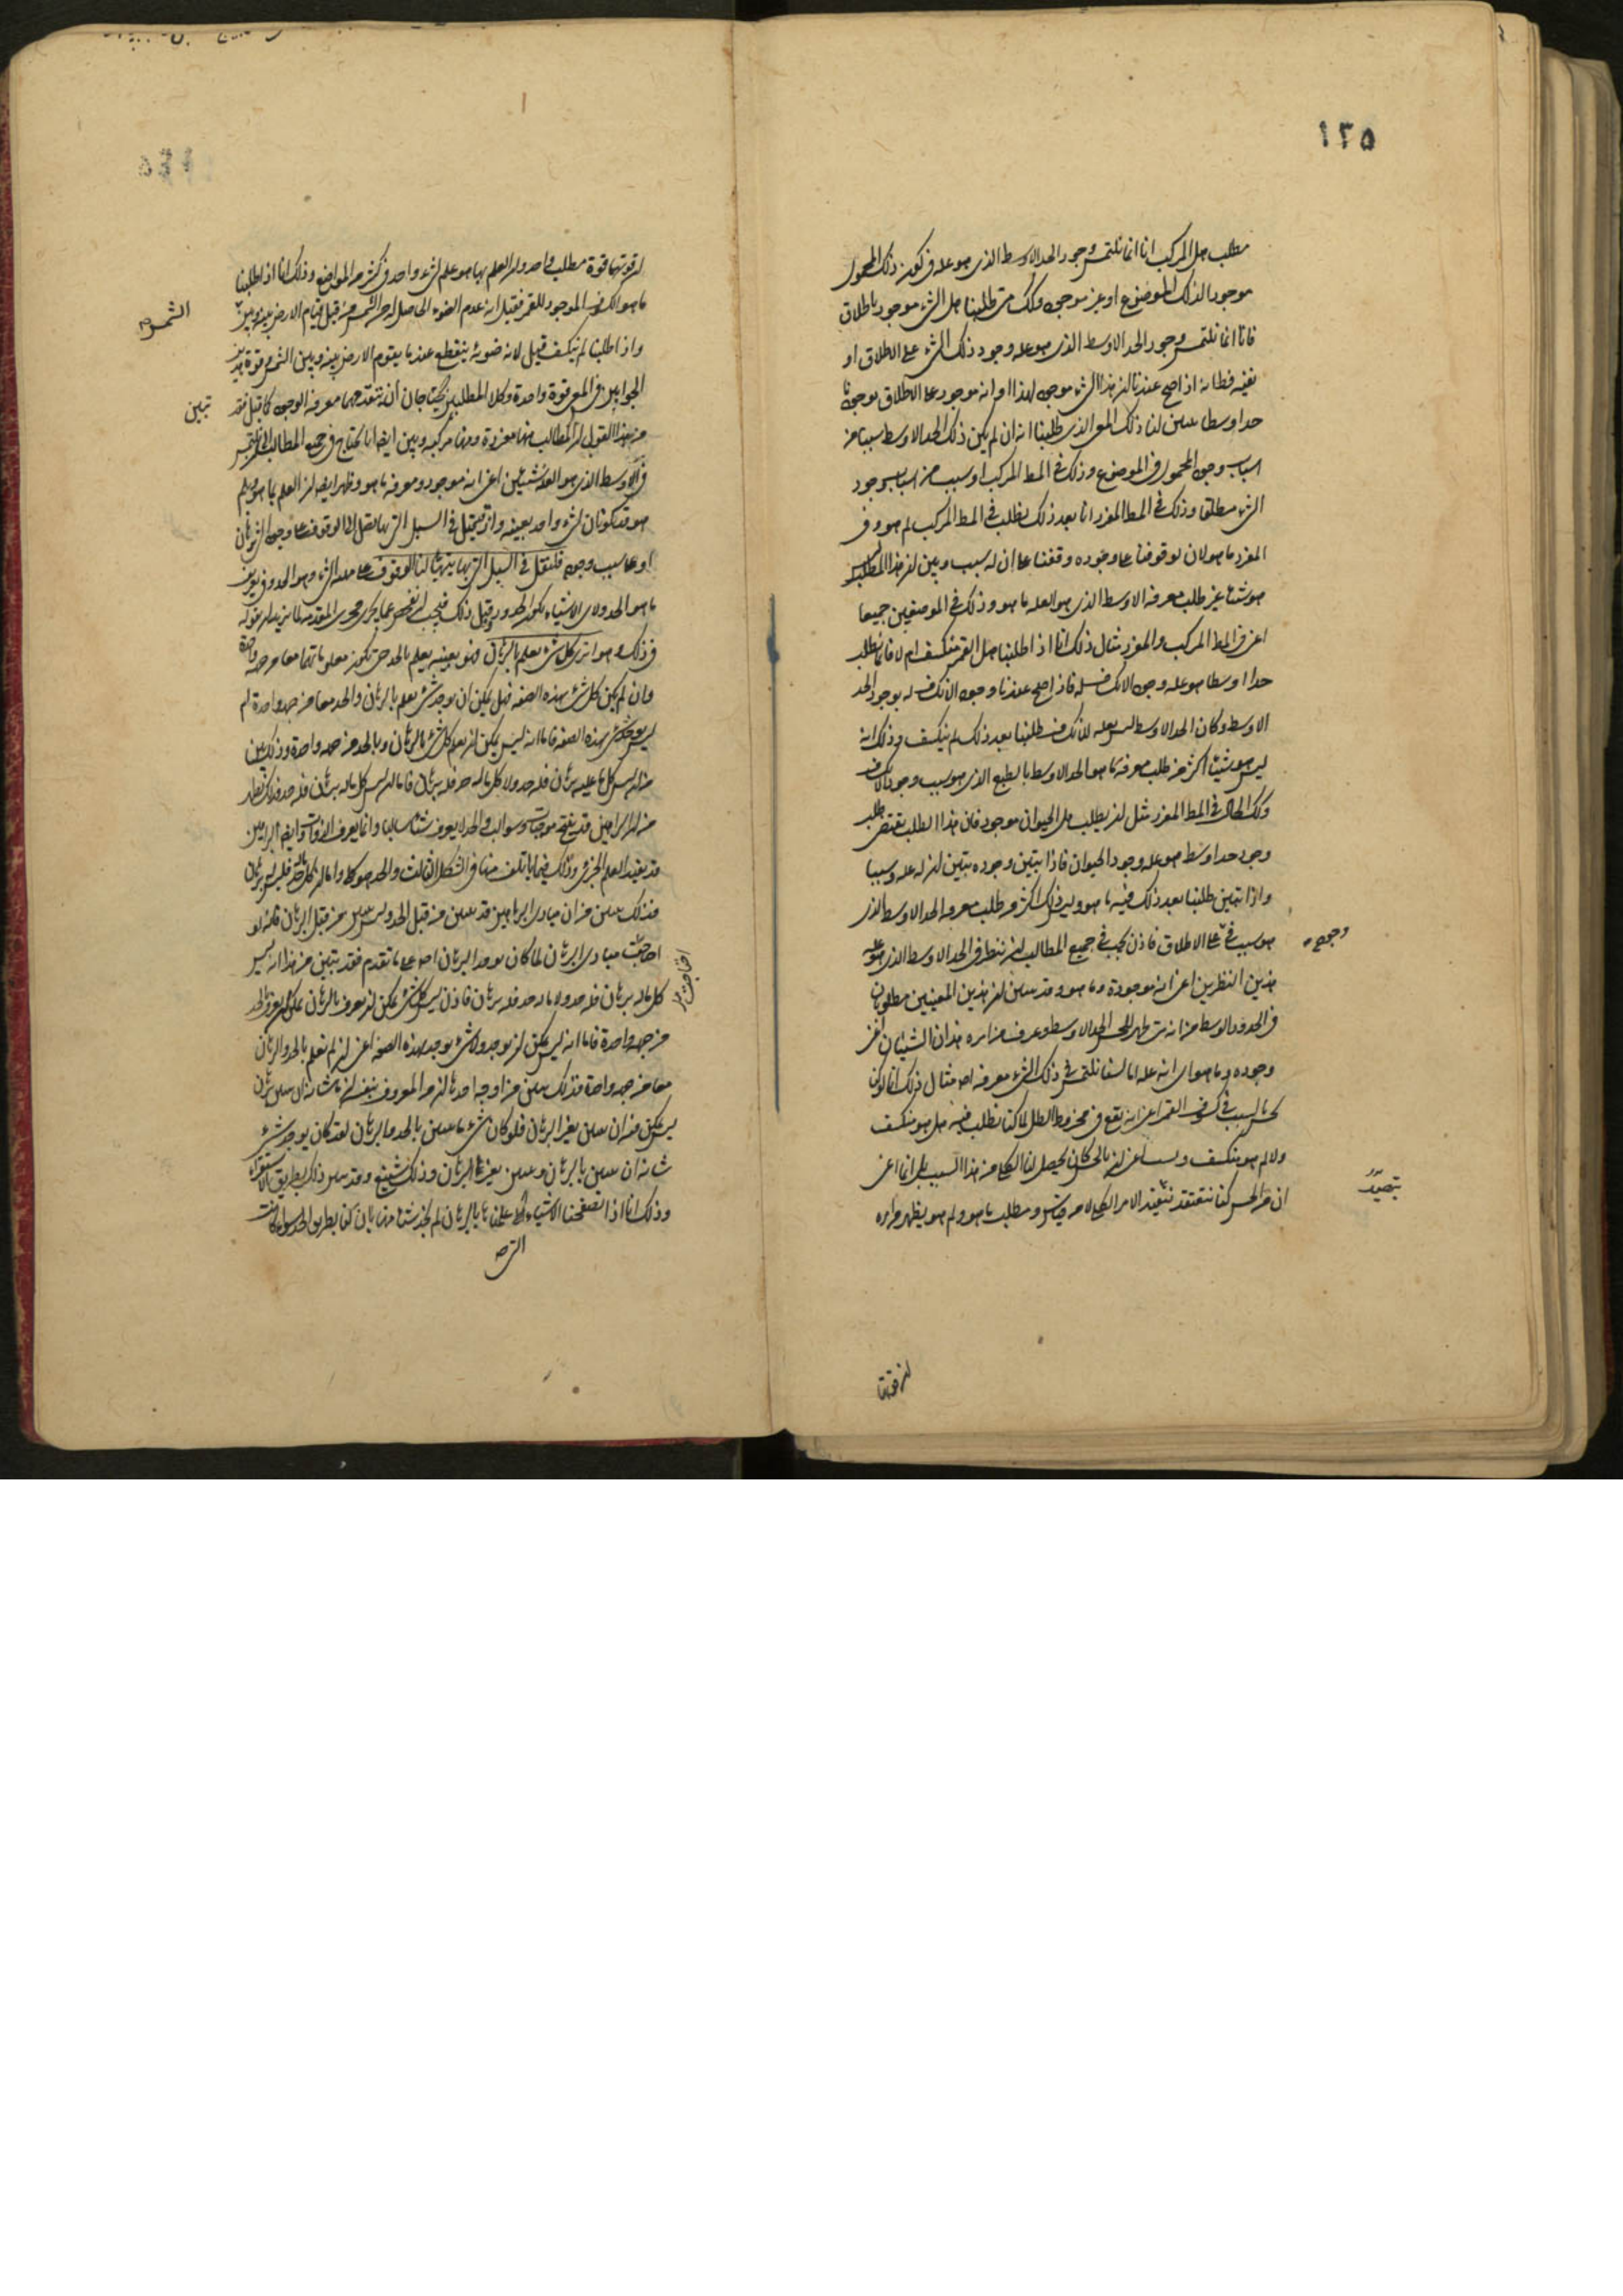 ١٢٥
مطلب هل المركب انا انما نلتمس وجود الحد الاوسط الذى هو عله فى كون ذلك المحمول
موجودا لذلك الموضوع او غير موجود وكك متى طلبنا هل الشىء موجود باطلاق
فانا انما نلتمس وجود الحد الاوسط الذى هو عله وجود ذلك الشىء على الاطلاق او
نفيه فظا انه اذا صح عندنا ان هذا الشىء موجود لهذا او انه موجود على الاطلاق بوجودنا
حدا اوسط تبين لنا ذلك المعنى الذى طلبنا انه ان لم يكن ذلك الحد الاوسط سببا من
اسباب وجود المحمول فى الموضوع وذلك فى المط المركب او سبب من اسباب وجود
الشىء مطلقا وذلك فى المط المفرد انا بعد ذلك نطلب فى المط المركب لم هو وفى
المفرد ما هو لان بوقوفنا على وجوده وقفنا على ان له سبب وبين ان هذا المطلب ليس
هو شيئا غير طلب معرفة الاوسط الذى هو العله ما هو وذلك فى الموضعين جميعا
اعنى فى المط المركب والمفرد مثال ذلك انا اذا طلبنا هل القمر منكسف ام لا فانما نطلب
حدا اوسطا هو عله وجود الانكساف له فاذا صح عندنا وجود الانكساف له بوجود الحد
الاوسط وكان الحد الاوسط ليس بعله للانكساف طلبنا بعد ذلك لم ينكسف وذلك انه
ليس هو شيئا اكثر من طلب معرفة ما هو الحد الاوسط بالطبع الذى هو سبب وجود الانكساف
وكك الحال فى المط المفرد مثل ان يطلب هل الحيوان موجود فان هذا الطلب يقتضى طلب
وجود حد اوسط هو عله وجود الحيوان فاذا تبين وجوده تبين ان له عله وسببا
واذا تبين طلبنا بعد ذلك فيه ما هو وليس ذلك اكثر من طلب معرفة الحد الاوسط الذى
هو سبب فى على الاطلاق فاذن يجب فى جميع المطالب ان ننظر فى الحد الاوسط الذى هو عله
وجوده
هذين النظرين اعنى انه موجود وما هو وقد تبين ان هذين المعنيين مطلوبان
فى الحدود الوسط من انه متى ظهر للحس الحد الاوسط وعرف من امره هذان الشيئان اعنى
وجوده وما هو اى انه عله لما لسنا نلتمس فى ذلك الشىء معرفة اصلا مثال ذلك انا لو كنا
نحس بالسبب فى كسوف القمر اعنى انه يقع فى مخروط الظل لما كنا نطلب فيه هل هو منكسف
ولا لم هو منكسف وليس اعنى ان بالحس كان يحصل لنا الكلى من هذا السبب بل انما اعنى
ان من الحس كنا نعتقد نتيقن الامر الكلى لا من قياس ومطلب ما هو ولم هو يظهر من امره
بتصيد
ان قوتها
ان قوتهما قوة مطلب واحد وان العلم بهما هو علم بشىء واحد فى كثير من المواضع وذلك انا اذا طلبنا
ما هو الكسوف الموجود للقمر فقيل انه عدم الضوء الحاصل له من الشمس من قبل قيام الارض بينه وبين
الشمس صح
واذا طلبنا لم ينكسف قيل لانه ضوئه ينقطع عندما يقوم الارض بينه وبين الشمس وقوة هذين
الجوابين فى المعنى قوة واحدة وكلا المطلبين يحتاجان ان تتقدمهما معرفة الوجود كما قيل فقد
تبين
من هذا القول ان المطالب منها مفردة ومنها مركبه وتبين ايضا انا نحتاج فى جميع المطالب ان نلتمس
فى الاوسط الذى هو العله شيئين اعنى انه موجود ومعرفة ما هو وظهر ايضا ان العلم بما هو وبلم
هو قد يكونان لشىء واحد بعينه واذ قد قيل فى السبيل التى بها نصل الى الوقوف على وجود الشىء باى
او على سبب وجوده فلنقل فى السبيل التى بها يتهيأ لنا الوقوف على عله الشىء وهو الحد وفى تعريف
ما هو الحد ولاى الاشياء يكون الحدود وقبل ذلك فيجب ان نفحص عما يجرى مجرى المقدمه لما نريد ان نقوله
فى ذلك وهو اترى كل شىء يعلم بالبرهان فهو بعينه يعلم بالحد حتى تكون معلوماتهما معا من جهة واحدة
وان لم يكن كل شىء بهذه الصفه فهل يمكن ان يوجد شىء يعلم بالبرهان والحد معا من جهه واحدة ام
ليس يوجد شىء بهذه الصفه فاما انه ليس يمكن ان يعلم كل شىء بالبرهان وبالحد من جهه واحدة وذلك يبين
من انه ليس كل ما عليه برهان فله حد ولا كل ما له حد فله برهان فاما انه ليس كل ما له برهان فله حد فذلك يظهر
من ان البراهين قد ينتج موجبات وسوالب والحد لا يعرف شيئا سالبا وانما يعرف الذوات وايضا البراهين
قد يفيد العلم الجزئى وذلك فيما ياتلف منها فى الشكل الثالث والحد هو كلى واما انه ليس كل ما له حد فله برهان
فذلك يتبين من ان مبادى البراهين قد تبين من قبل الحد وليس تبين من قبل البرهان فانه لو
احتاجت مبادى البرهان لما كان يوجد البرهان اصلا على ما تقدم فقد تبين من هذا انه ليس
كل ما له برهان فله حد ولا ما له حد فله برهان فاذن ليس كل شىء يمكن ان يعرف بالبرهان يمكن ان يعرف بالحد
من جهه واحدة فاما انه ليس يمكن ان يوجد ولا شىء يوجد بهذه الصفه اعنى ان لم نعلم بالحد والبرهان
معا من جهه واحدة فذلك يتبين من اوجه احدها ان من المعروف بنفسه ان ما شانه ان يتبين ببرهان
ليس يمكن فيه ان يتبين بغير البرهان فلو كان شىء ما يتبين بالحد وبالبرهان لقد كان يوجد شىء
شانه ان يتبين بالبرهان ويتبين بغير البرهان وذلك شنيع وقد يتبين ذلك بطريق الاستقراء
وذلك انا اذا تصفحنا الاشياء التى علمناها بالبرهان لم نجد شيئا منها بان لنا بطريق الحد سواء كانت
التى صح